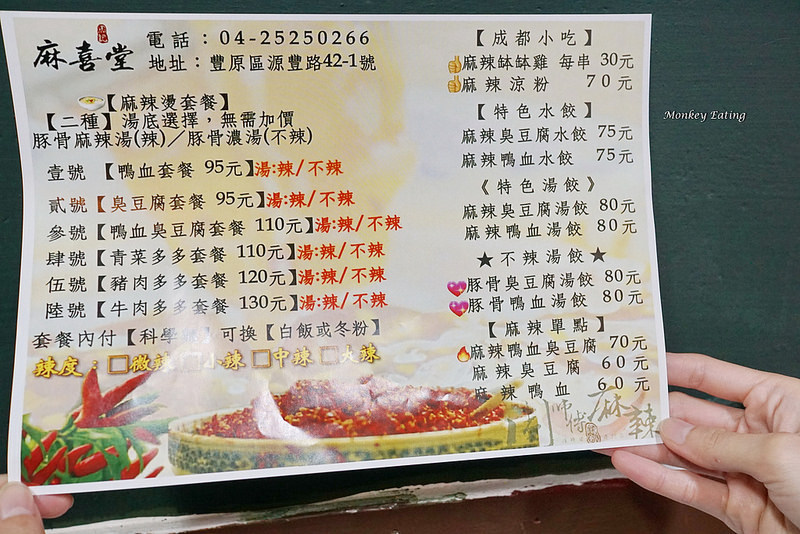 麻喜堂
電話：04-25250266
地址：豐原區源豐路42-1號
【麻辣燙套餐】
【二種】湯底選擇，無需加價
豚骨麻辣湯(辣)／豚骨濃湯(不辣)
壹號【鴨血套餐 95元】湯:辣/不辣
貳號【臭豆腐套餐 95元】湯:辣/不辣
參號【鴨血臭豆腐套餐 110元】湯:辣/不辣
肆號【青菜多多套餐 110元】湯:辣/不辣
伍號【豬肉多多套餐 120元】湯:辣/不辣
陸號【牛肉多多套餐 130元】湯:辣/不辣
套餐內付【科學麵】可換【白飯或冬粉】
辣度：□微辣 □小辣 □中辣 □大辣
【成都小吃】
麻辣缽缽雞 每串 30元
麻辣涼粉 70元
【特色水餃】
麻辣臭豆腐水餃 75元
麻辣鴨血水餃 75元
《特色湯餃》
麻辣臭豆腐湯餃 80元
麻辣鴨血湯餃 80元
★不辣湯餃★
豚骨臭豆腐湯餃 80元
豚骨鴨血湯餃 80元
【麻辣單點】
麻辣鴨血臭豆腐 70元
麻辣臭豆腐 60元
麻辣鴨血 60元
麻辣
Monkey Eating